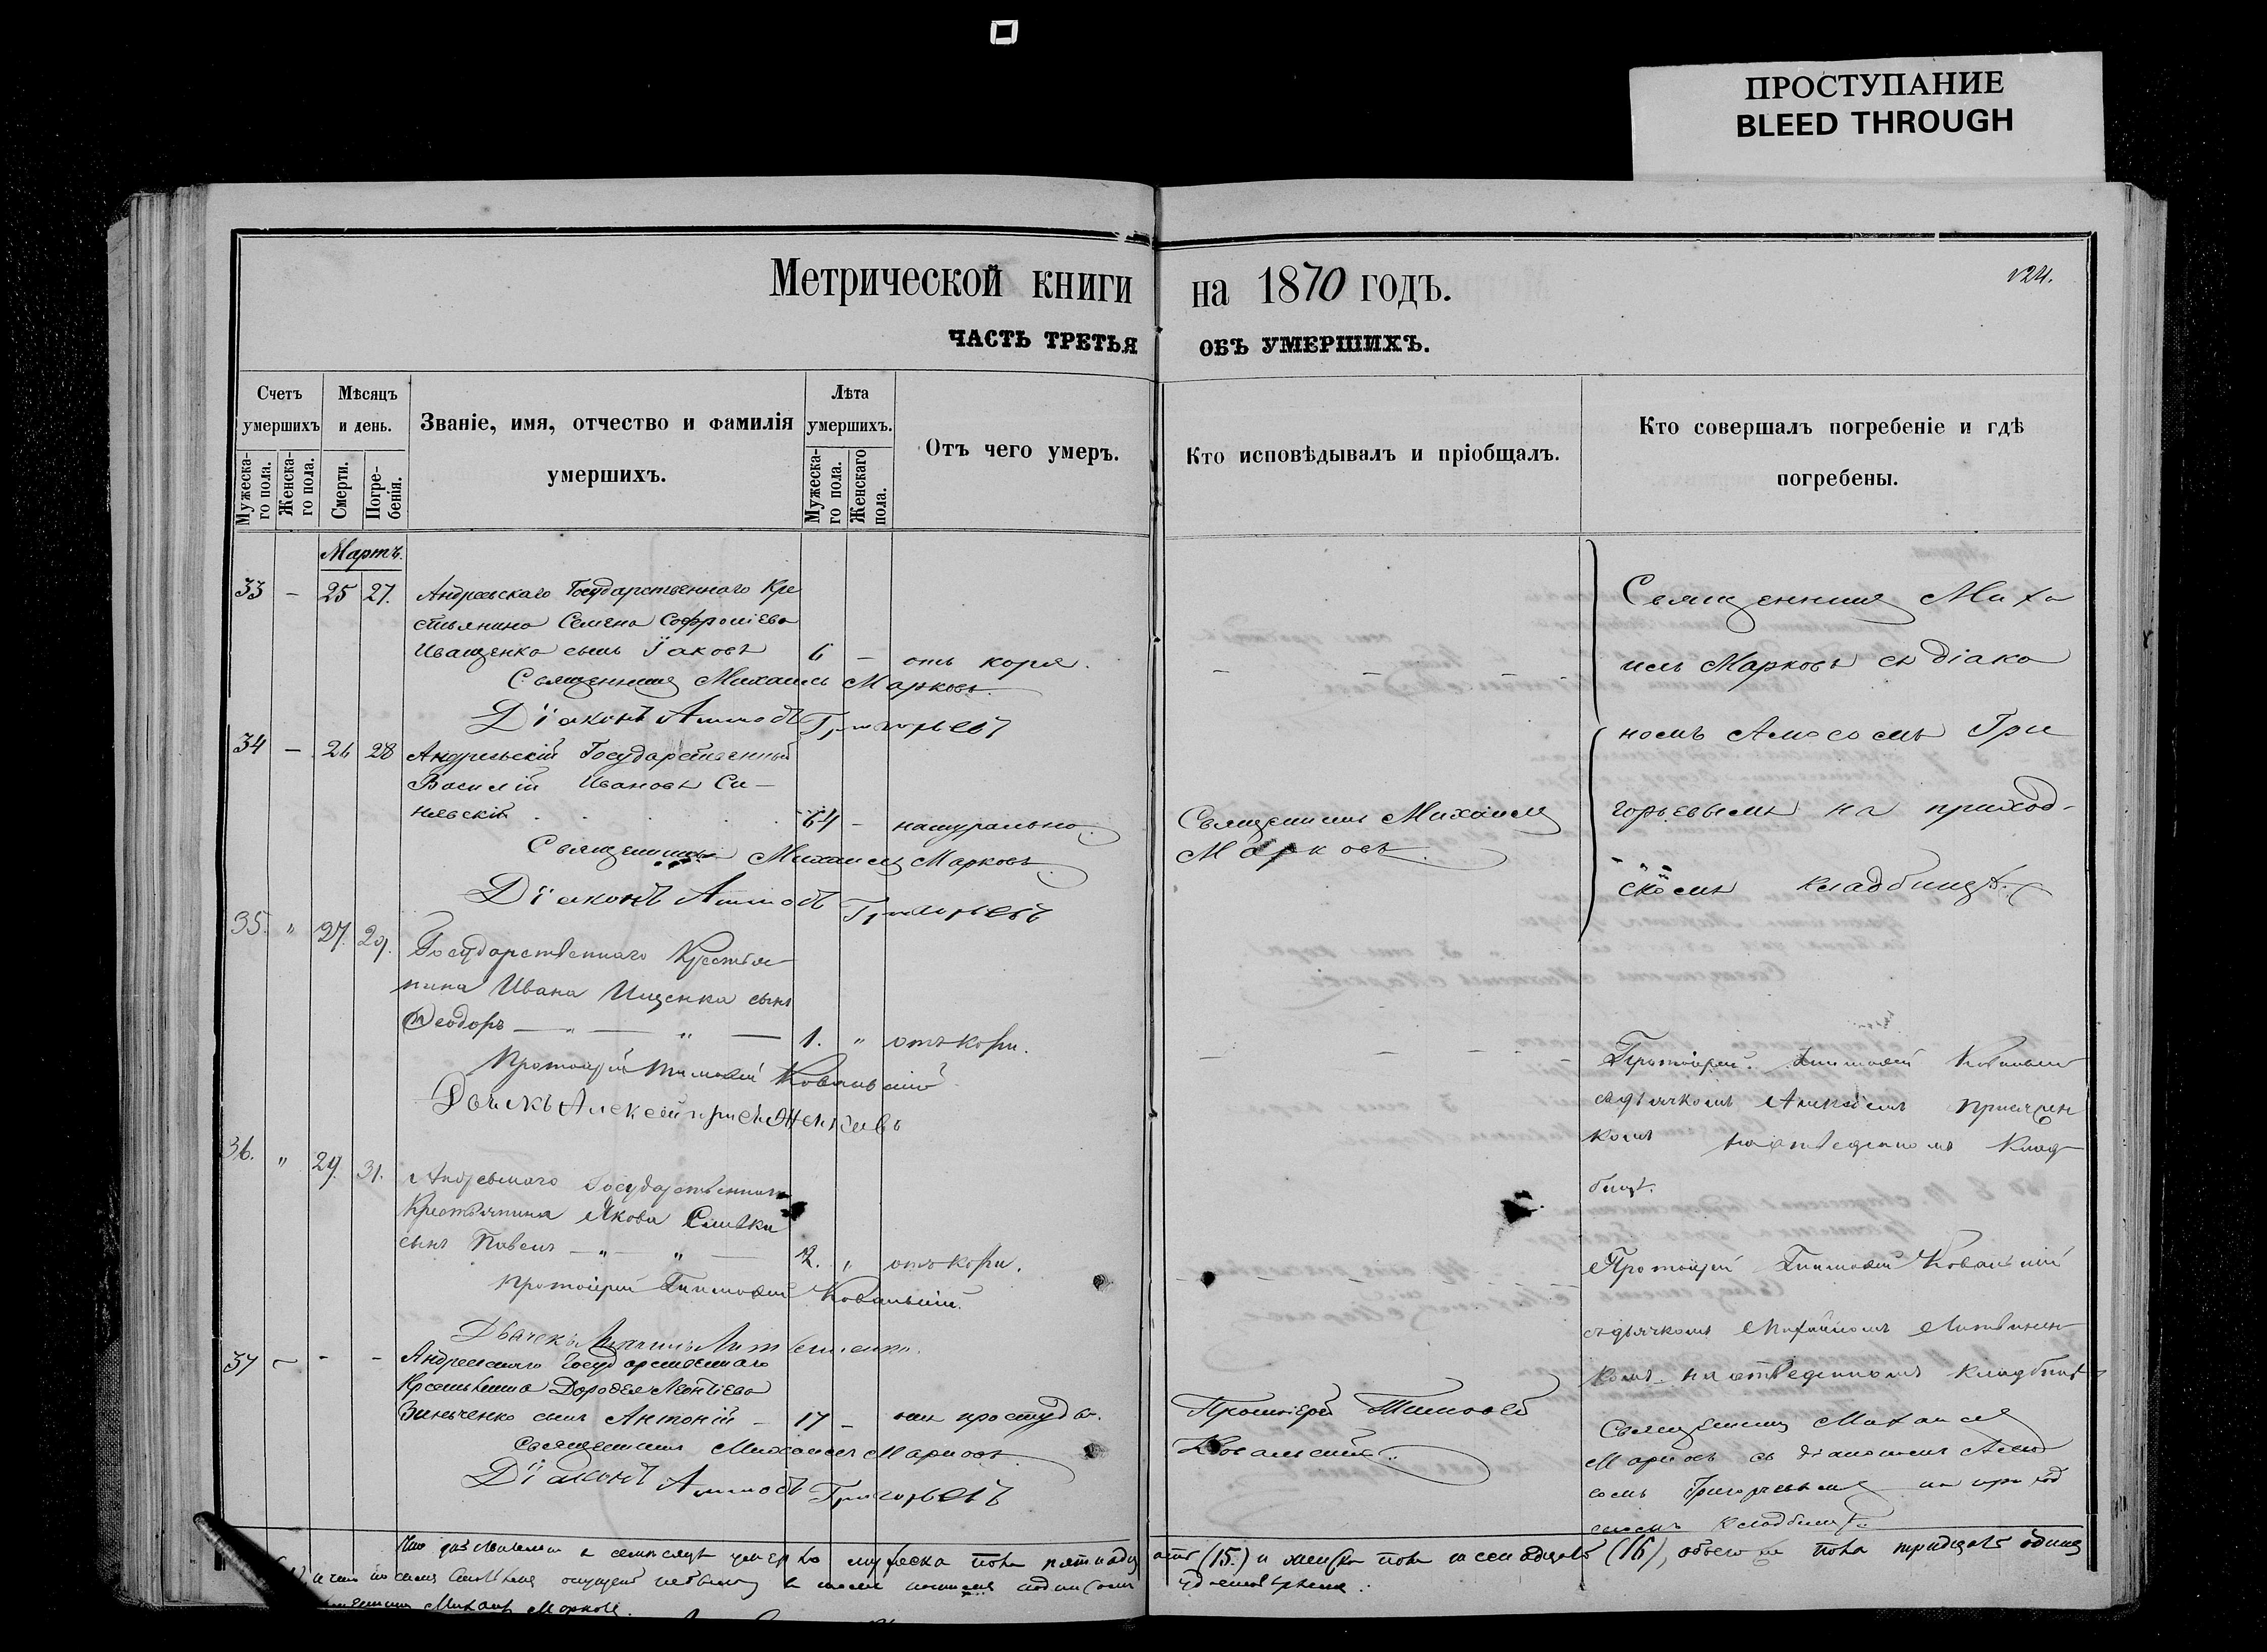 ПРОСТУПАНИЕ
BLEED THROUGH
Метрической книги на 1870 годъ.
124.
ЧАСТЬ ТРЕТЬЯ ОБЪ УМЕРШИХЪ.
Счетъ умершихъ
Мужеска-го пола.
Женска-го пола.
Мѣсяцъ и день.
Смерти.
Погре-бенія.
Званіе, имя, отчество и фамилія умершихъ.
Лѣта умершихъ.
Мужеска-го пола.
Женскаго пола.
Отъ чего умеръ.
Кто исповѣдывалъ и пріобщалъ.
Кто совершалъ погребеніе и гдѣ погребены.
Мартъ.
33 — 25 27. Андреевскаго Государственнаго Кре
стьянина Семена Софроніева
Иващенка сынъ Іаковъ 6 — отъ кори.
Священникъ Михаилъ Марковъ.
Діаконъ Аммосъ Григорьевъ
Священникъ Миха
илъ Марковъ съ діако
номъ Амосомъ Гри
горьевымъ на приход-
скомъ кладбищѣ.
34 — 26 28 Андреевскій Государственный
Василій Ивановъ Си-
нявскій 64 — натурально.
Священникъ Михаилъ Марковъ.
Діаконъ Аммосъ Григорьевъ
Священникъ Михаилъ
Марковъ.
35. " 27. 29. Государственнаго Крестья
нина Ивана Ищенка сынъ
Ѳеодоръ — " — " — 1. " отъ кори.
Протоіерей Тимоѳей Ковальскій
Дьячекъ Алексей
Протоіерей Тимоѳей Ковальскій
съ дьячкомъ Алексѣемъ
комъ на отведенномъ клад
бищѣ.
36. " 29. 31. Андреевскаго Государственнаго
Крестьянина Якова
сынъ Павелъ — " — " — 2. " отъ кори.
Протоіерей Тимоѳей Ковальскій.
Дьячекъ Литвиненко.
Протоіерей Тимоѳей Ковальскій
съ дьячкомъ Литвинен
комъ на отведенномъ кладбищѣ
37 — - - Андреевскаго Государственнаго
Крестьянина Дороѳея Леонтіева
Зинченко сынъ Антоній — 17 — отъ простуды.
Священникъ Михаилъ Марковъ.
Діаконъ Аммосъ Григорьевъ
Протоіерей Тимоѳей
Ковальскій.
Священникъ Михаилъ
Марковъ съ діакономъ Аммо
сомъ Григорьевымъ на приход
скомъ кладбищѣ.
мужеска пола пятнадцать (15) и женска пола шеснадцать (16), обоего пола тридцать одинъ
Михаилъ Марковъ.